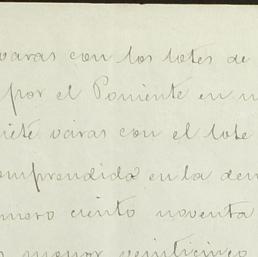 varas con los lotes de
por el Poniente en
siete váras con el lote
comprendida en la
mero ciento noventa
menor veinticinco